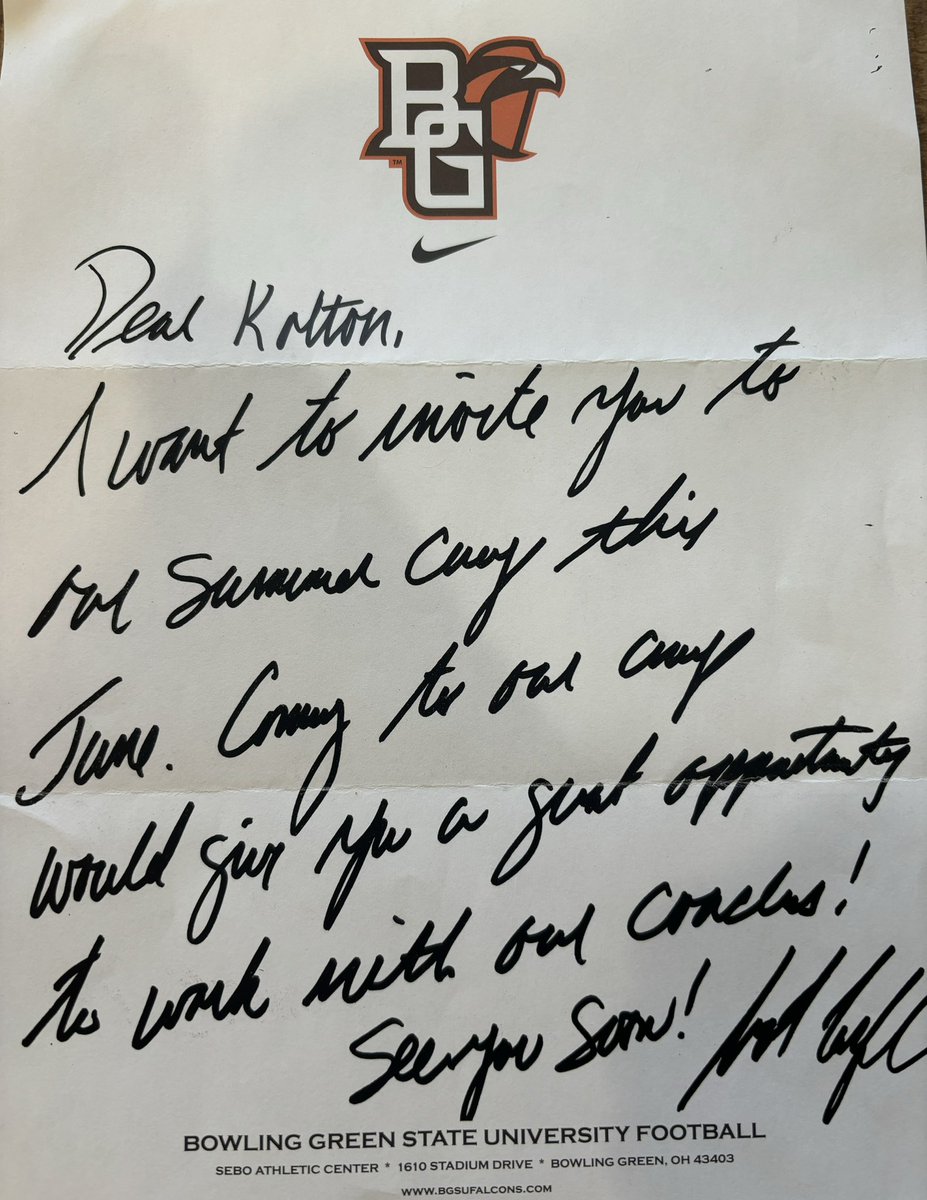 BG
TM
Dear Kolton,
I want to invite you to
our Summer Camp this
June. Coming to our camp
would give you a great opportunity
to work with our coaches!
See you Soon!
BOWLING GREEN STATE UNIVERSITY FOOTBALL
SEBO ATHLETIC CENTER * 1610 STADIUM DRIVE * BOWLING GREEN, OH 43403
WWW.BGSUFALCONS.COM